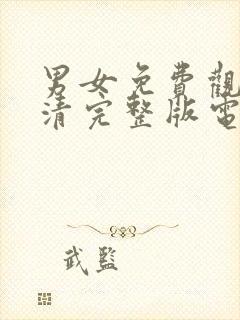 男女免費觀
清完整版電
武監